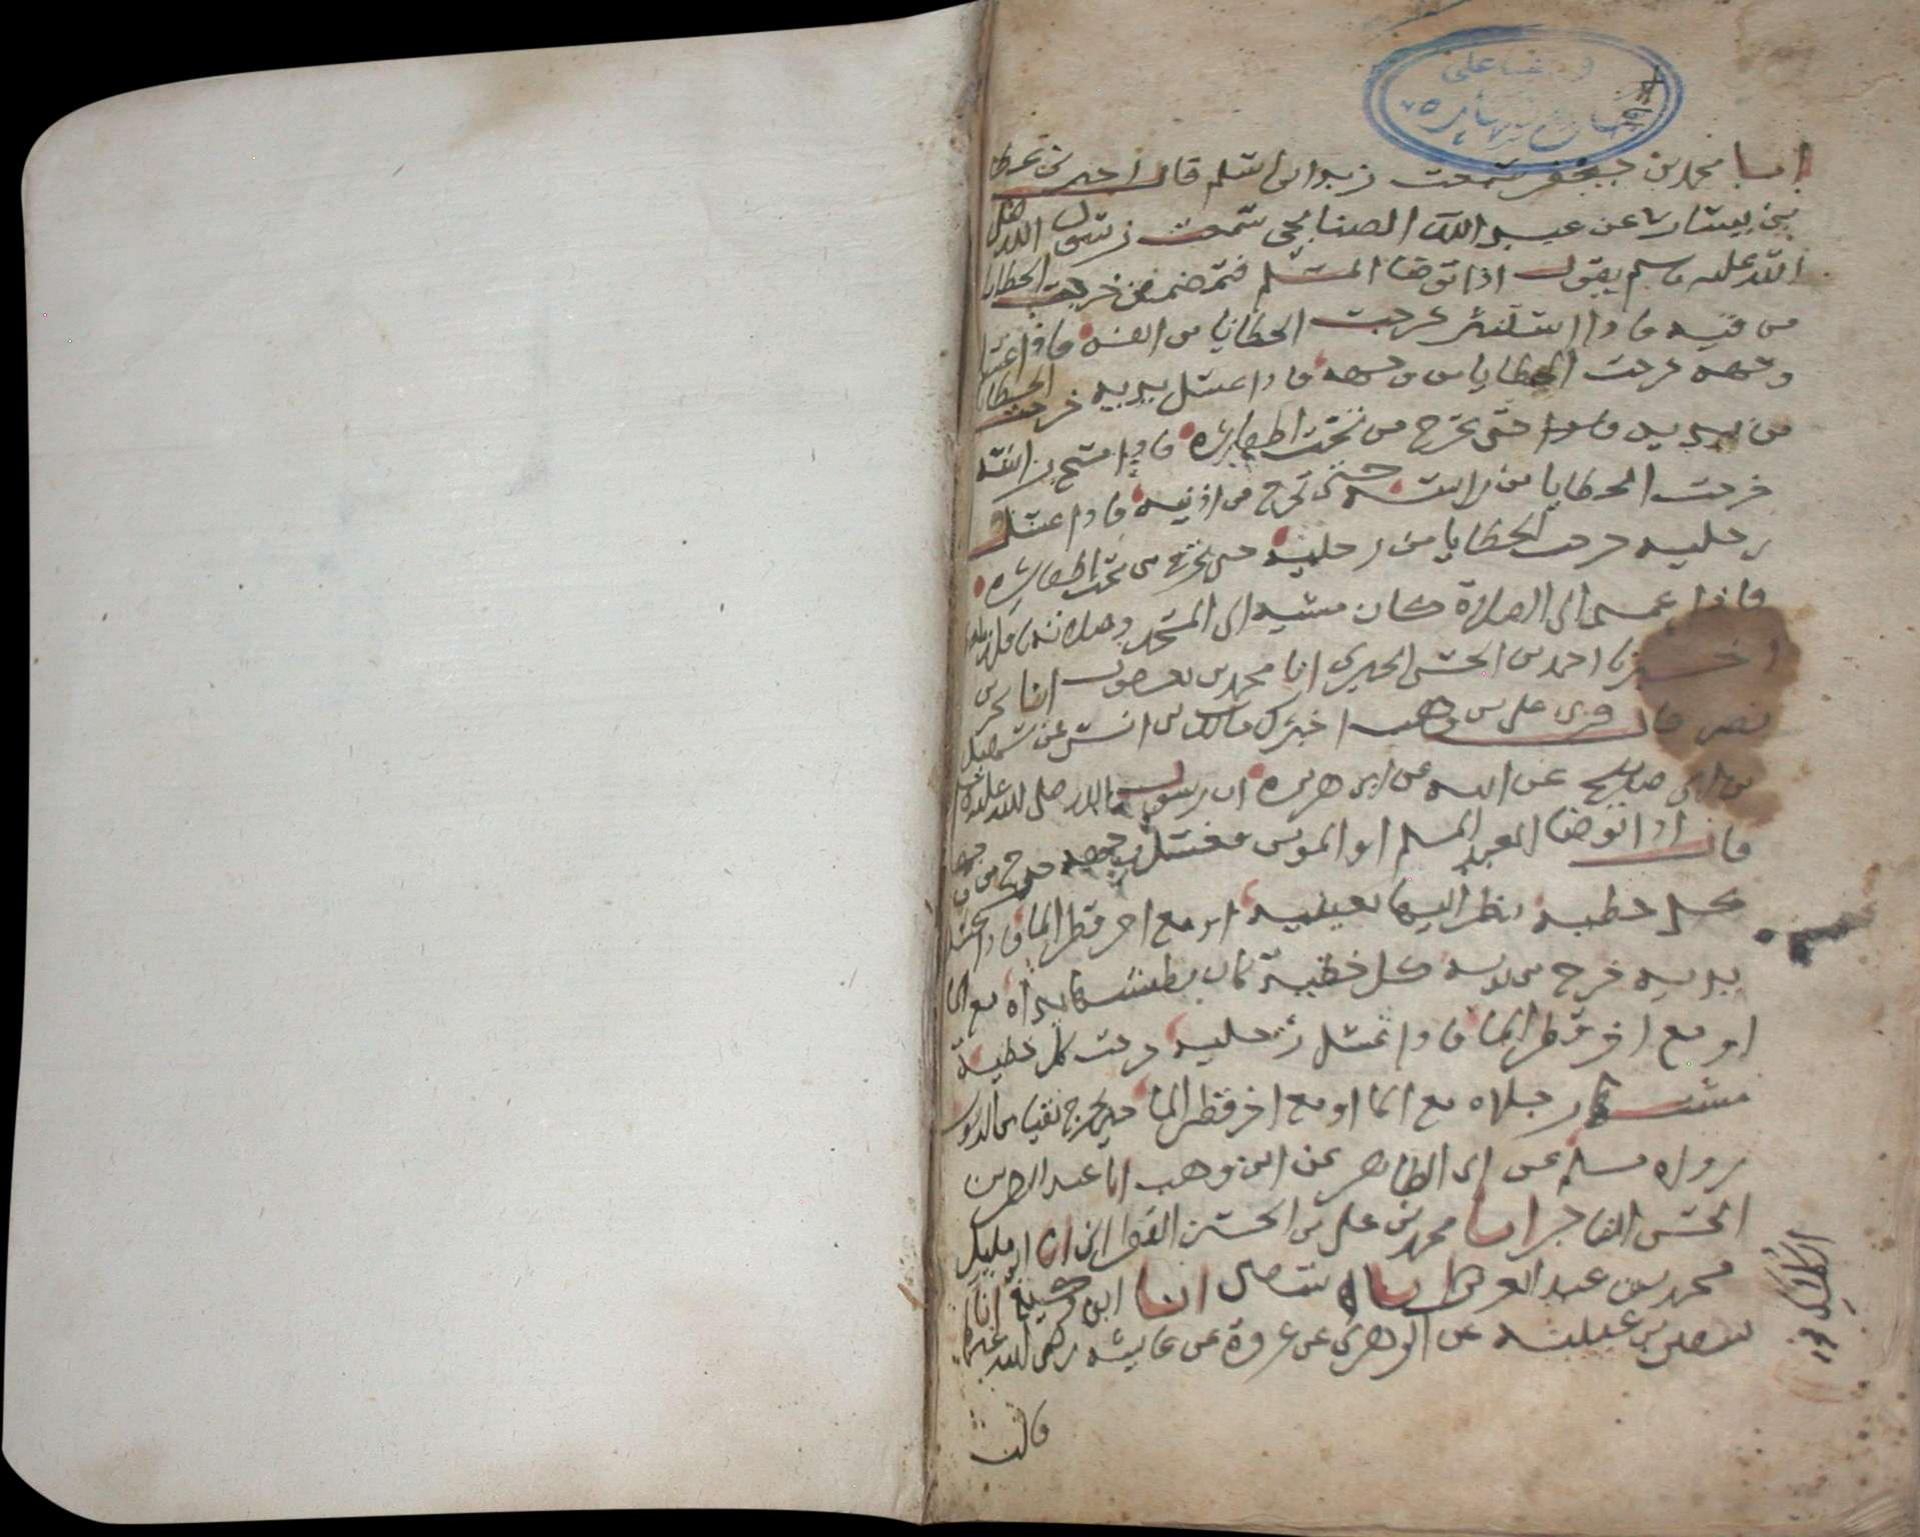 انبا محمد بن جعفر سمعت زيد ابن اسلم قال اخبرني عطا
بن يسار عن عبد الله الصنابحي سمعت رسول الله صلى
الله عليه وسلم يقول اذا توضا المسلم فتمضمض خرجت الخطايا
من فيه فاذا استنثر خرجت الخطايا من انفه فاذا غسل
وجهه خرجت الخطايا من وجهه فاذا غسل يديه خرجت الخطايا
من يديه حتى تخرج من تحت اظفاره فاذا مسح براسه
خرجت الخطايا من راسه حتى تخرج من اذنيه فاذا غسل
رجليه خرجت الخطايا من رجليه حتى تخرج من تحت اظفاره
فاذا عمد الى الصلاة كان مشيه الى المسجد وصلاته نافلة
اخبرنا احمد بن الحسن الحيري انا محمد بن يعقوب انا بحر بن
نصر قال قرى على بن وهب اخبرك مالك بن انس عن سهيل
بن ابي صالح عن ابيه عن ابي هريرة ان رسول الله صلى الله عليه وسلم
قال اذا توضا العبد المسلم او المومن فغسل وجهه خرج من وجهه
كل خطية نظر اليها بعينيه او مع اخر قطر الما فاذا غسل
يديه خرج من يديه كل خطية كان بطشتها يداه مع الما
او مع اخر قطر الما فاذا غسل رجليه خرجت كل خطية
مشتها رجلاه مع الما او مع اخر قطر الما حتى يخرج نقيا من الذنوب
رواه مسلم عن ابي الطاهر عن ابن وهب انا عبد الرحمن
الحسن التاجر انا محمد بن علي بن الحسن
محمد بن عبد انا ابن انا
سفين بن عيينه عن الزهري عن عروة عن عايشه رضى الله عنها
قالت